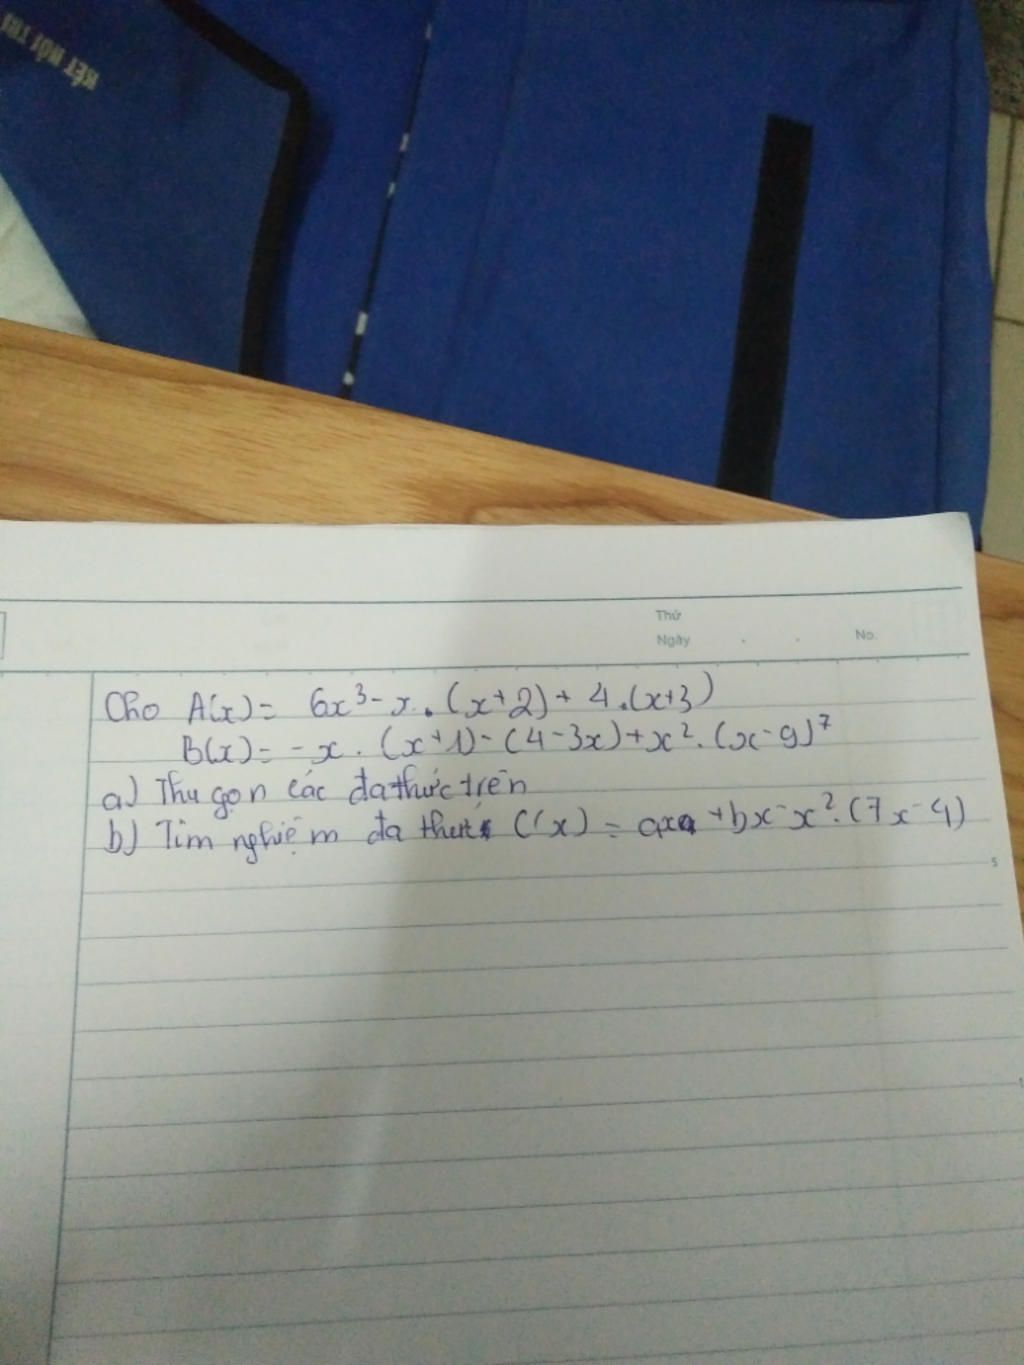 KẾT NỐI TRI
Thứ
Ngày . . No.
Cho A(x) = 6x³ - x . (x+2) + 4 . (x+3)
B(x) = -x . (x+1) - (4-3x) + x² . (x-9)⁷
a) Thu gọn các đa thức trên
b) Tìm nghiệm đa thức C(x) = ax + bx - x² . (7x-4)
5